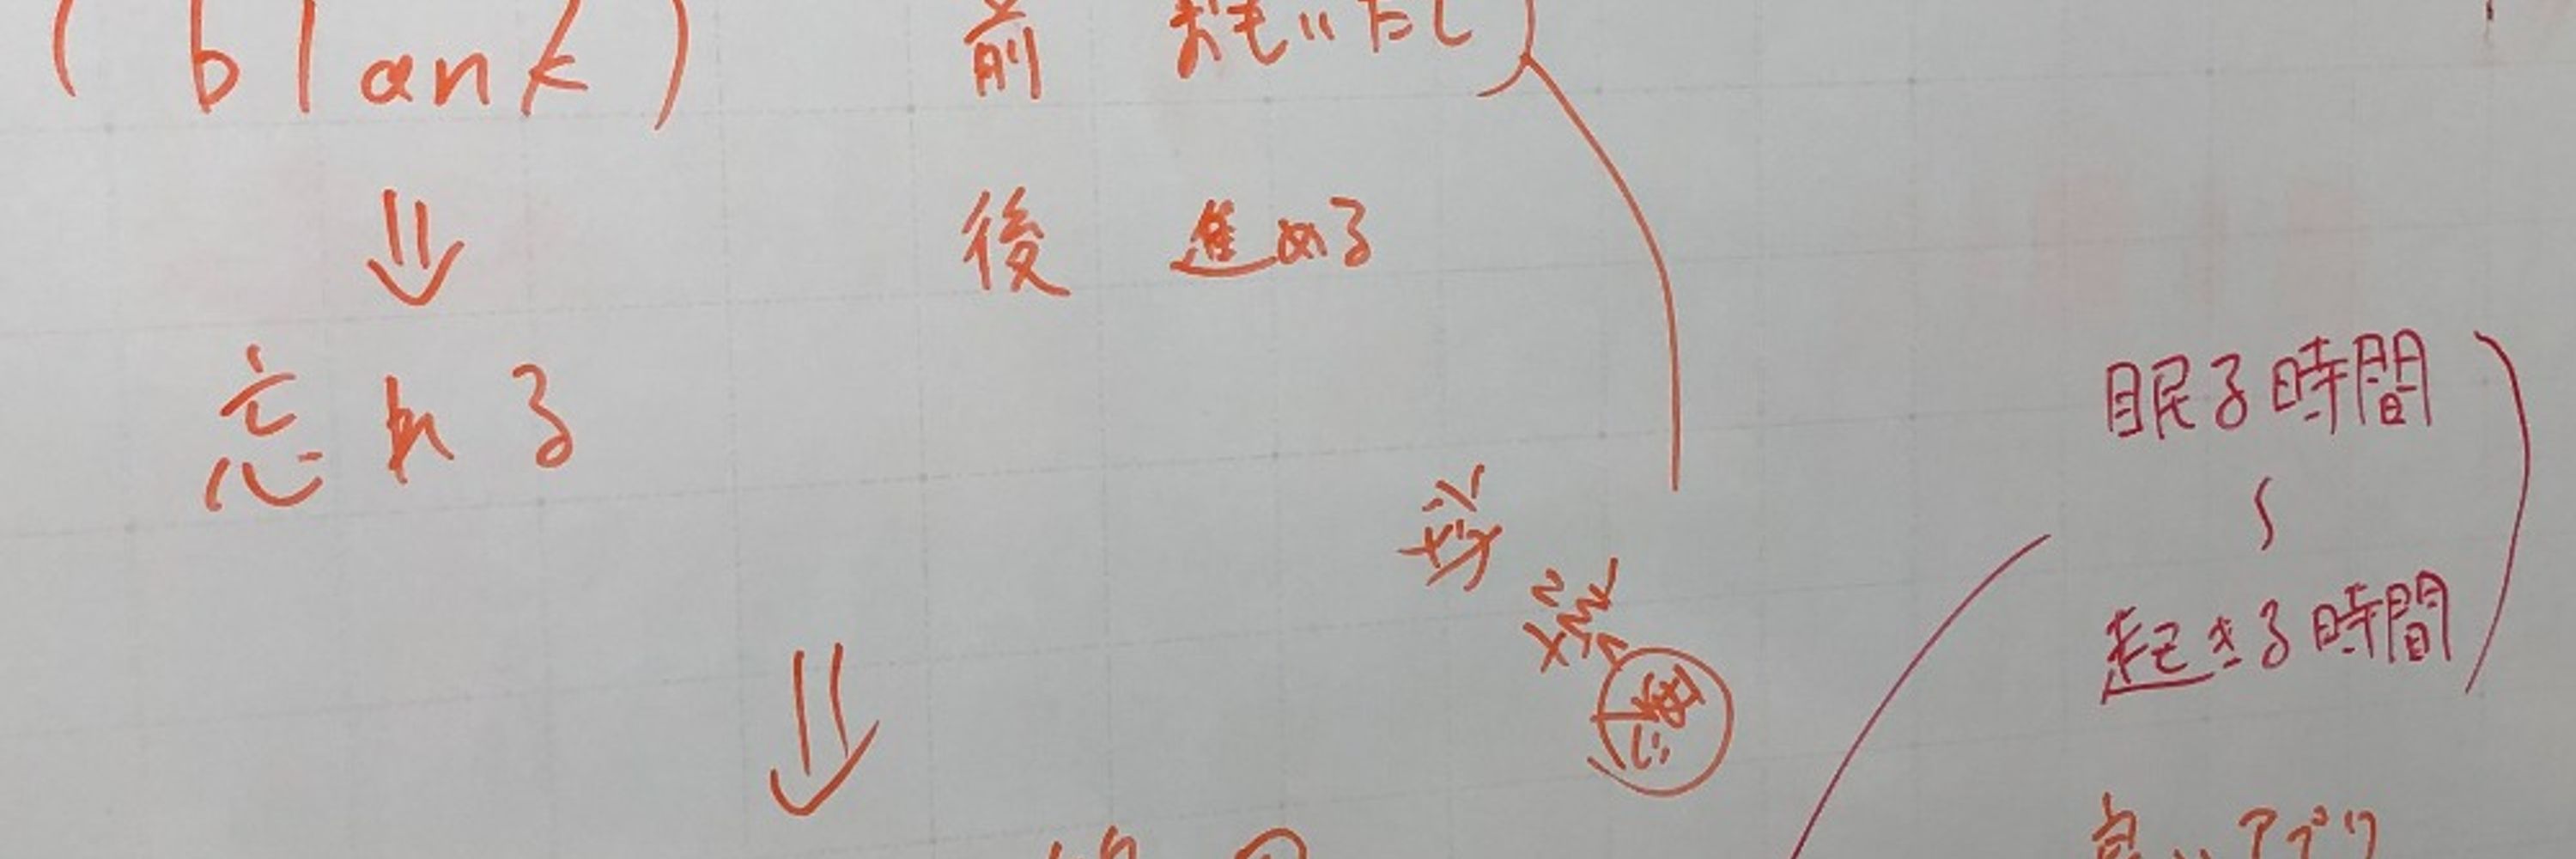 (blank)
前 おもいだし
⇓
後 進める
忘れる
眠る時間
〜
起きる時間
⇓
良いアプリ